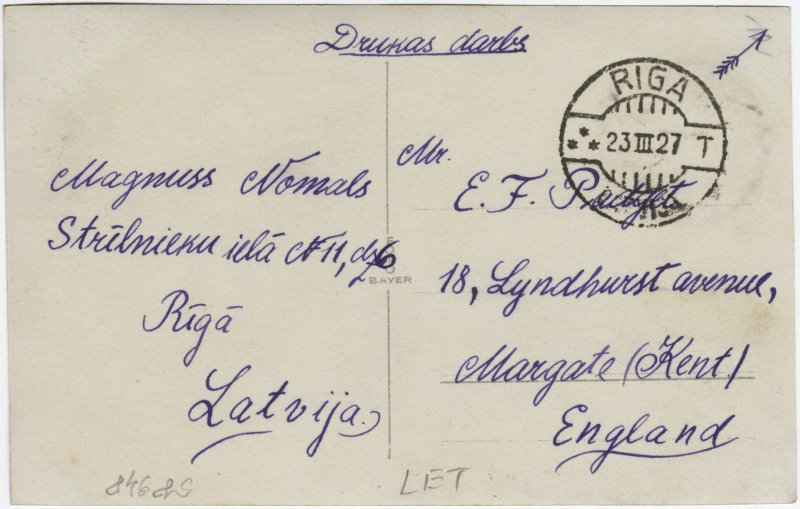 Drukas darbs
RIGA
23 III 27 T
Magnuss Nomals
Strēlnieku ielā № 11, dz 6
Rīgā
Latvija
Mr.
E. F.
18, Lyndhurst avenue,
Margate (Kent.)
England
BAYER
LET